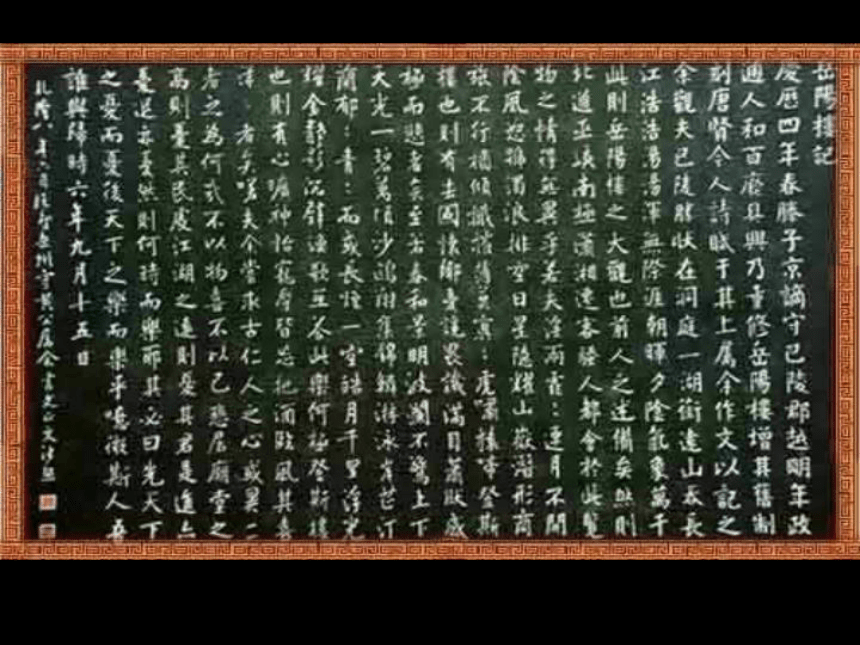 岳陽樓記
慶曆四年春滕子京謫守巴陵郡越明年政
通人和百廢具興乃重修岳陽樓增其舊制
刻唐賢今人詩賦于其上屬余作文以記之
余觀夫巴陵勝狀在洞庭一湖銜遠山吞長
江浩浩湯湯渾無際涯朝暉夕陰氣象萬千
此則岳陽樓之大觀也前人之述備矣然則
北通巫峽南極瀟湘遷客騷人都會於此覽
物之情得無異乎若夫淫雨霏:連月不開
陰風怒號濁浪排空日星隱耀山嶽潛形商
旅不行檣傾檝摧薄暮冥:虎嘯猿啼登斯
樓也則有去國懷鄉憂讒畏譏滿目蕭然感
極而悲者矣至若春和景明波瀾不驚上下
天光一碧萬頃沙鷗翔集錦鱗游泳岸芷汀
蘭郁:青:而或長煙一空皓月千里浮光
耀金靜影沉璧漁歌互答此樂何極登斯樓
也則有心曠神怡寵辱皆忘把酒臨風其喜
洋:者矣嗟夫余嘗求古仁人之心或異二
者之為何哉不以物喜不以己悲居廟堂之
高則憂其民處江湖之遠則憂其君是進亦
憂退亦憂然則何時而樂耶其必曰先天下
之憂而憂後天下之樂而樂乎噫微斯人吾
誰與歸時六年九月十五日
乾隆八年